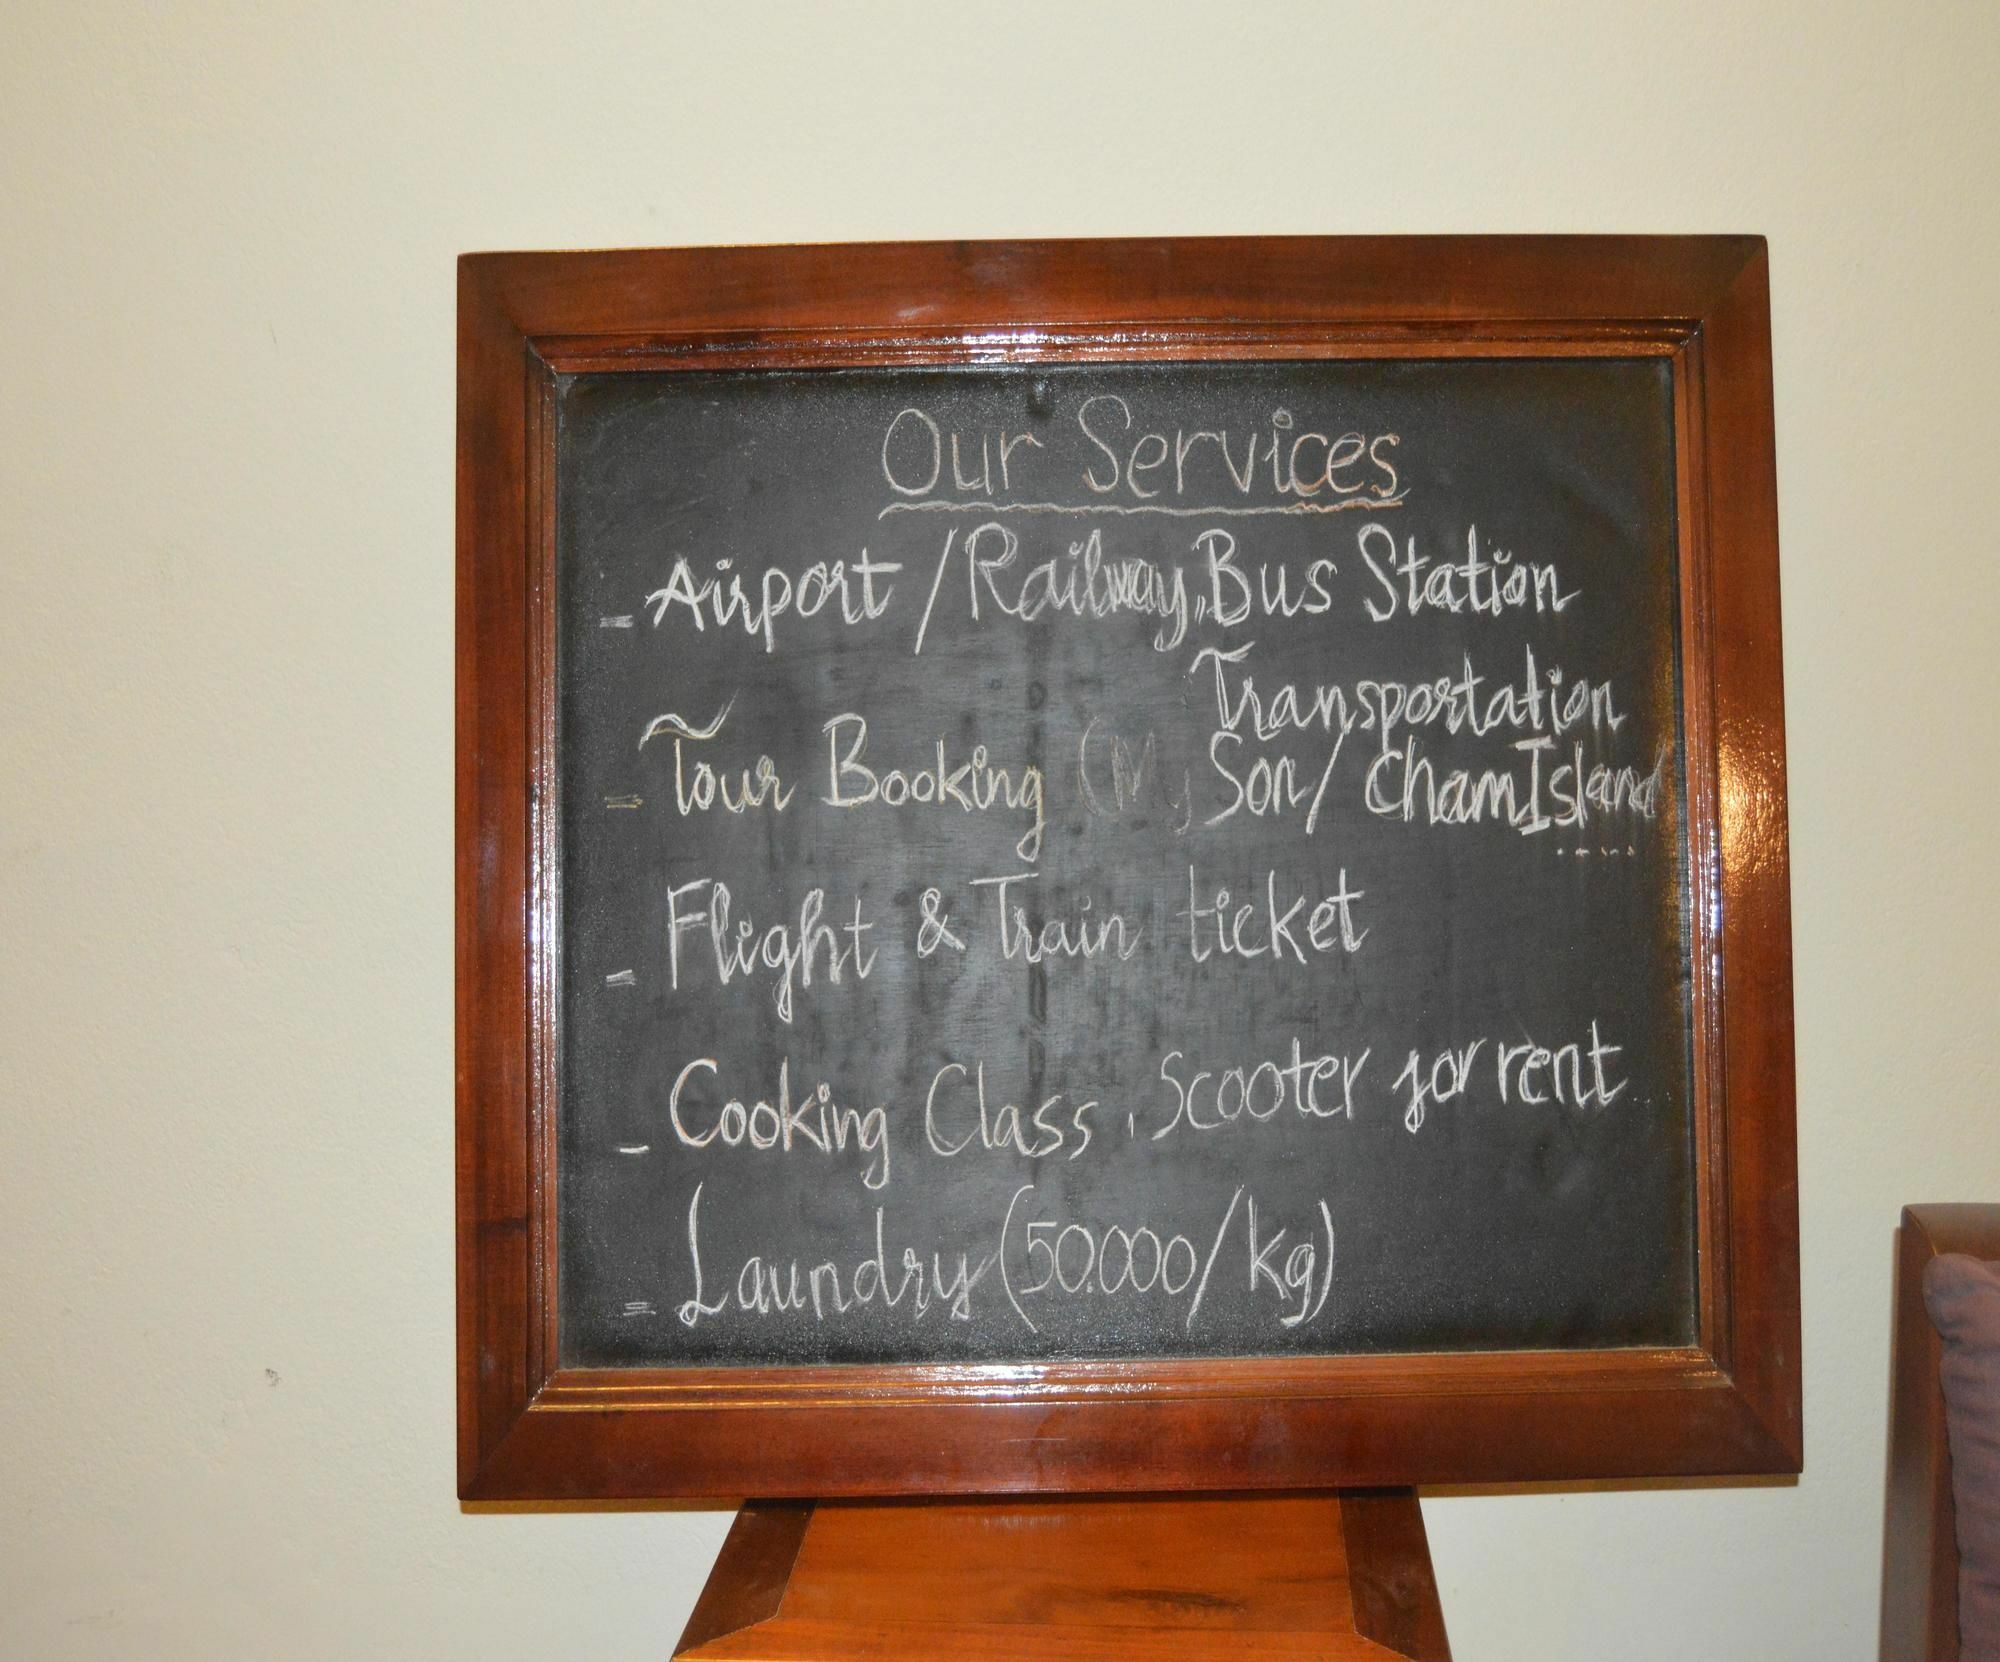 Our Services
- Airport / Railway, Bus Station
Transportation
= Tour Booking (My Son / Cham Island
....
= Flight & Train ticket
- Cooking Class, Scooter for rent
= Laundry (50.000/kg)